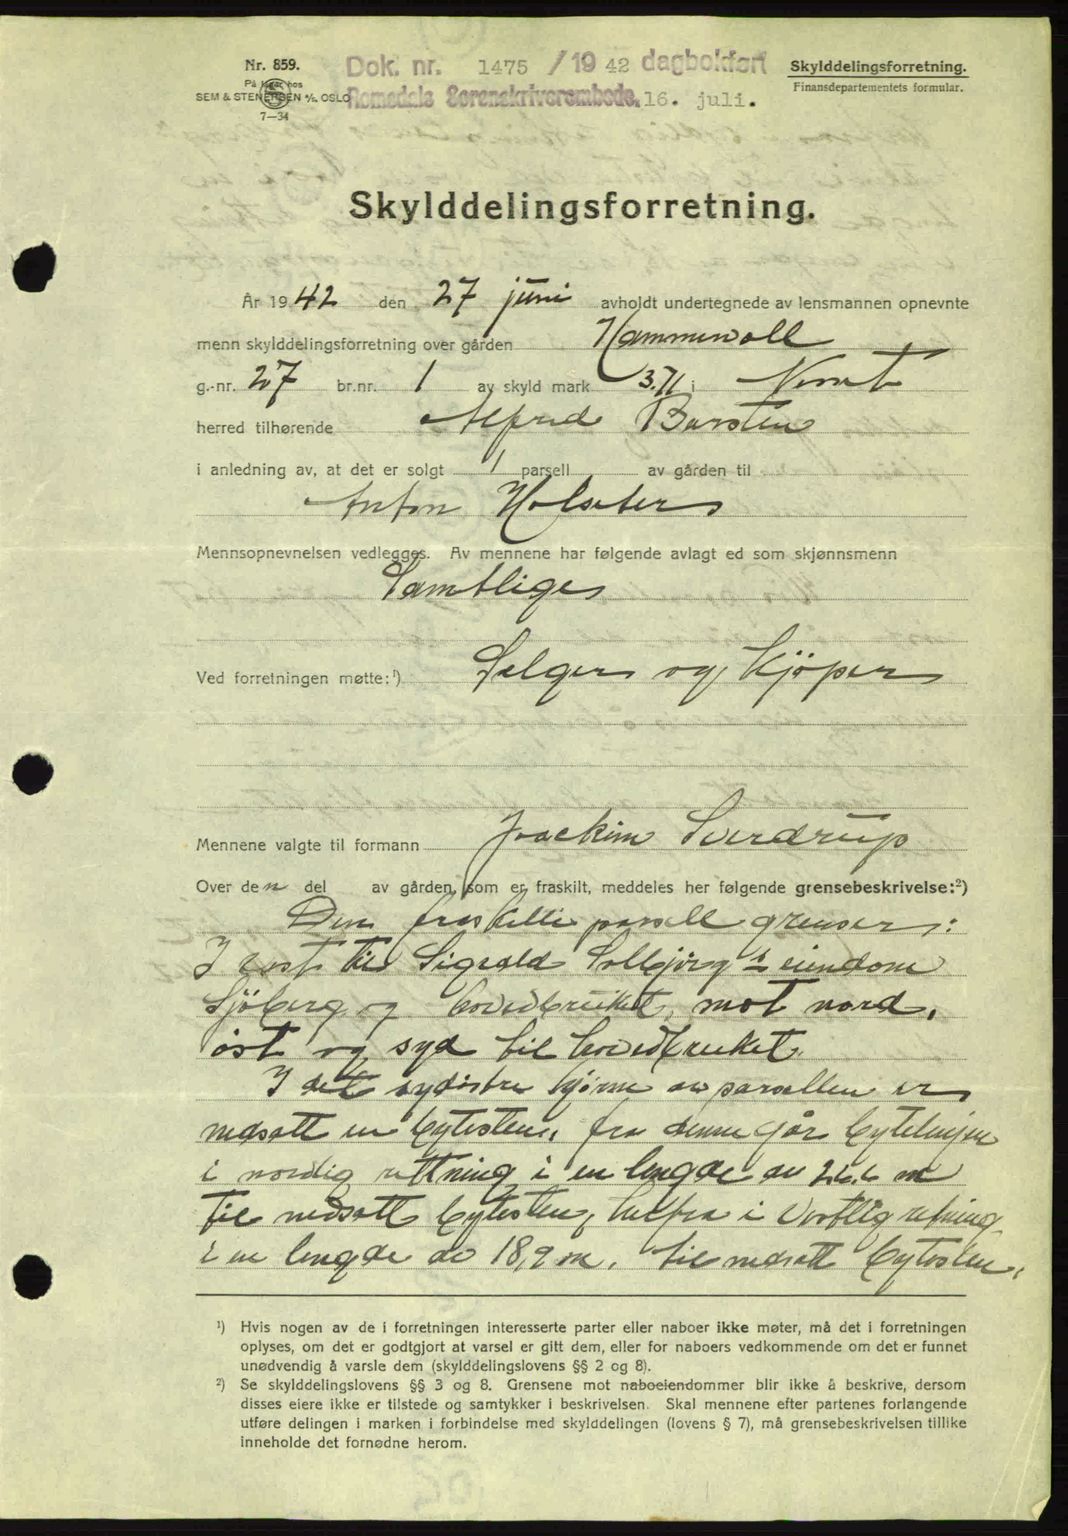 Nr. 859.
På lager hos
SEM & STENERSEN A/S. OSLO
7—34
Dok. nr. 1475 /19 42 dagbokført
Romsdals Sorenskriverembede, 16. juli.
Skylddelingsforretning.
Finansdepartementets formular.
Skylddelingsforretning.
År 1942 den 27 juni avholdt undertegnede av lensmannen opnevnte
menn skylddelingsforretning over gården Hammervoll
g.-nr. 27 br.nr. 1 av skyld mark 3.71 i
herred tilhørende Alfred Barsten
i anledning av, at det er solgt 1 parsell av gården til
Anton Holsæter
Mennsopnevnelsen vedlegges. Av mennene har følgende avlagt ed som skjønnsmenn
Samtlige
Ved forretningen møtte:¹) Selger og kjöper
Mennene valgte til formann Joackim Sverdrup
Over den del av gården, som er fraskilt, meddeles her følgende grensebeskrivelse:²)
Den fraskilte parsell grenser:
I vest til Sigvald Solbjörg's eiendom
Sjöberg og hovedbruket, mot nord,
öst og syd til hovedbruket.
I det sydöstre hjörne av parsellen er
nedsatt en bytesten, fra denne går bytelinjen
i nordlig rettning i en lengde av 26.6 m
til nedsatt bytesten, herfra i vestlig retning
i en lengde av 18,9 m. til nedsatt bytesten,
¹) Hvis nogen av de i forretningen interesserte parter eller naboer ikke møter, må det i forretningen
oplyses, om det er godtgjort at varsel er gitt dem, eller for naboers vedkommende om det er funnet
unødvendig å varsle dem (skylddelingslovens §§ 2 og 8).
²) Se skylddelingslovens §§ 3 og 8. Grensene mot naboeiendommer blir ikke å beskrive, dersom
disses eiere ikke er tilstede og samtykker i beskrivelsen. Skal mennene efter partenes forlangende
utføre delingen i marken i forbindelse med skylddelingen (lovens § 7), må grensebeskrivelsen tillike
inneholde det fornødne herom.